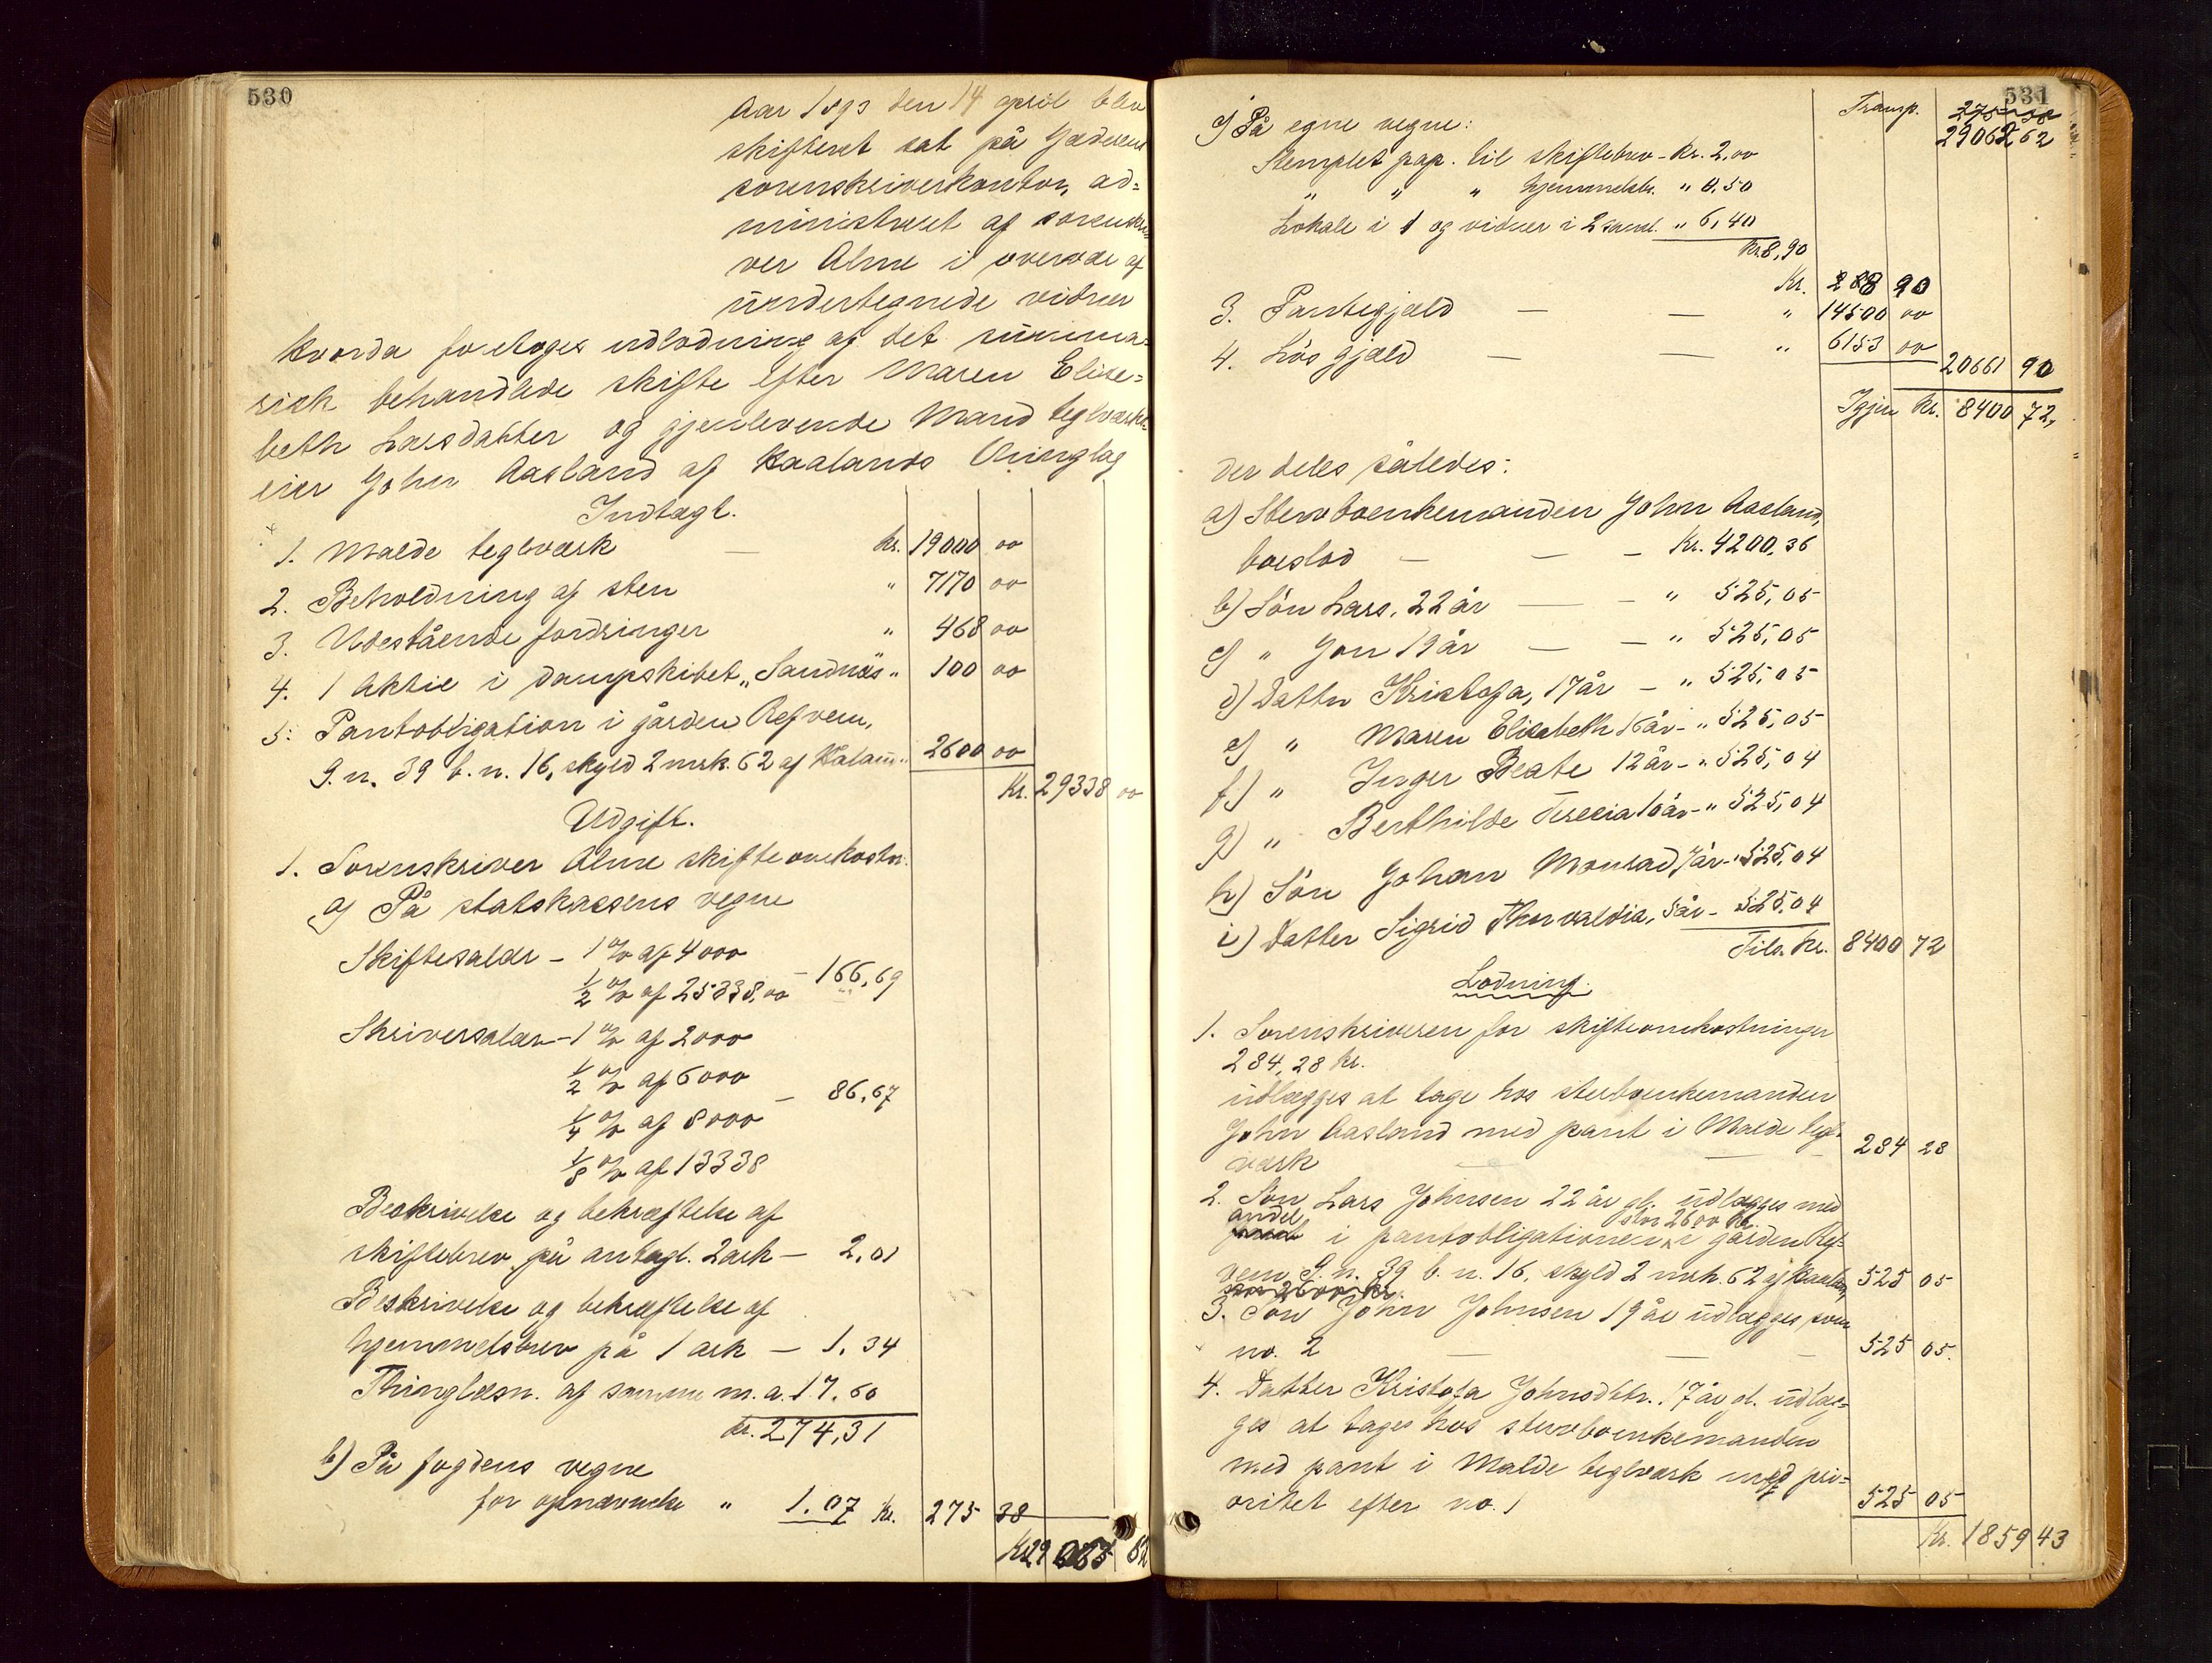 530
Aar 1893 den 14 april blev
skifteret sat på Jæderens
sorenskriverkontor, ad=
ministreret af sorenskri
ver Alme i overvær af
undertegnede vidner
hvorda foretoges udlodning af det summa=
risk behandlede skifte efter Maren Elise=
beth Larsdatter og gjenlevende Mand teglværks
eier John Aasland af Haalands thinglag
Indtægt.
1. Malde teglværk — Kr. 19000 00
2. Beholdning af sten " 7170 00
3. Udestående fordringer " 468 00
4. 1 Aktie i dampskibet "Sandnæs" 100 00
5. Pantobligation i gården Refvem,
G.n. 39 b.n. 16, skyld 2 mrk. 62 af Haaland 2600 00
Kr. 29338 00
Udgift.
1. Sorenskriver Alme skifteomkostn.
a) På statskassens vegne
Skiftesalær – 1 % af 4000
½ % af 25338,00 – 166,69
Skriversalær – 1 % af 2000
½ % af 6000
– 86,67
¼ % af 8000
⅛ % af 13338
Beskrivelse og bekræftelse af
skiftebrev på antagl. 2 ark – 2,01
Beskrivelse og bekræftelse af
hjemmelsbrev på 1 ark – 1.34
Thinglæsn. af samme m.a. 17.60
Kr. 274,31
b) På fogdens vegne
for opnævnelse " 1.07 Kr. 275 38
Kr. 29 062 62
531
Transp. 275 38
29062 62
c) På egne vegne:
Stemplet pap. til skiftebrev – Kr. 2,00
" " " hjemmelsbr. " 0,50
Lokale i 1 og vidner i 2 saml. " 6,40
Kr. 8,90
Kr. 8 90
3. Pantegjæld — — " 14500 00
4. Løs gjæld — — " 6153 00
20661 90
Igjen Kr. 8400 72,
der deles således:
a) Stervboenkemanden John Aasland,
boeslod — — – Kr. 4200,36
b) Søn Lars, 22 år — – " 525,05
c) " Jon 19 år — – " 525,05
d) Datter Kristofa, 17 år – " 525,05
e) " Maren Elisebeth 16 år – " 525,05
f) " Inger Beate 12 år – " 525,04
g) " Berthilde Teresia 10 år – " 525,04
h) Søn Johan Monrad 7 år – " 525,04
i) Datter Sigrid Thorvaldia, 5 år – 525,04
Tils. Kr. 8400 72
Lodning.
1. Sorenskriveren for skifteomkostninger
284,28 Kr.
udlægges at tage hos stervboenkemanden
John Aasland med pant i Malde tegl-
værk — — – 284 28
2. Søn Lars Johnsen 22 år gl. udlægges med
andel stor 2600 kr.
pant i pantobligationen i gården Ref=
vem G.n. 39 b.n. 16, skyld 2 mrk. 62 af Haaland, 525 05
stor 2600 kr.
3. Søn John Johnsen 19 år udlægges som
no. 2 — — – 525 05.
4. Datter Kristofa Johnsdtr. 17 år gl. udlæg=
ges at tages hos stervboenkemanden
med pant i Malde teglværk med pri=
oritet efter no. 1 525 05
Kr. 1859 43